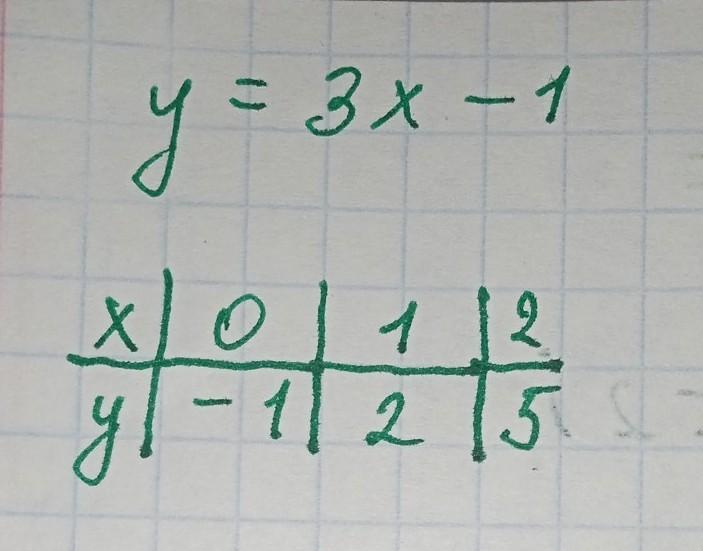 y = 3x - 1
x | 0 | 1 | 2
y | -1 | 2 | 5